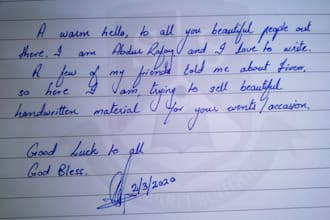 A warm hello, to all you beautiful people out
there. I am Abdur Rafay and I love to write.
A few of my friends told me about Fiverr,
so here I am, trying to sell beautiful
handwritten material for your events/occasion.
Good Luck to all
God Bless.
2/3/2020